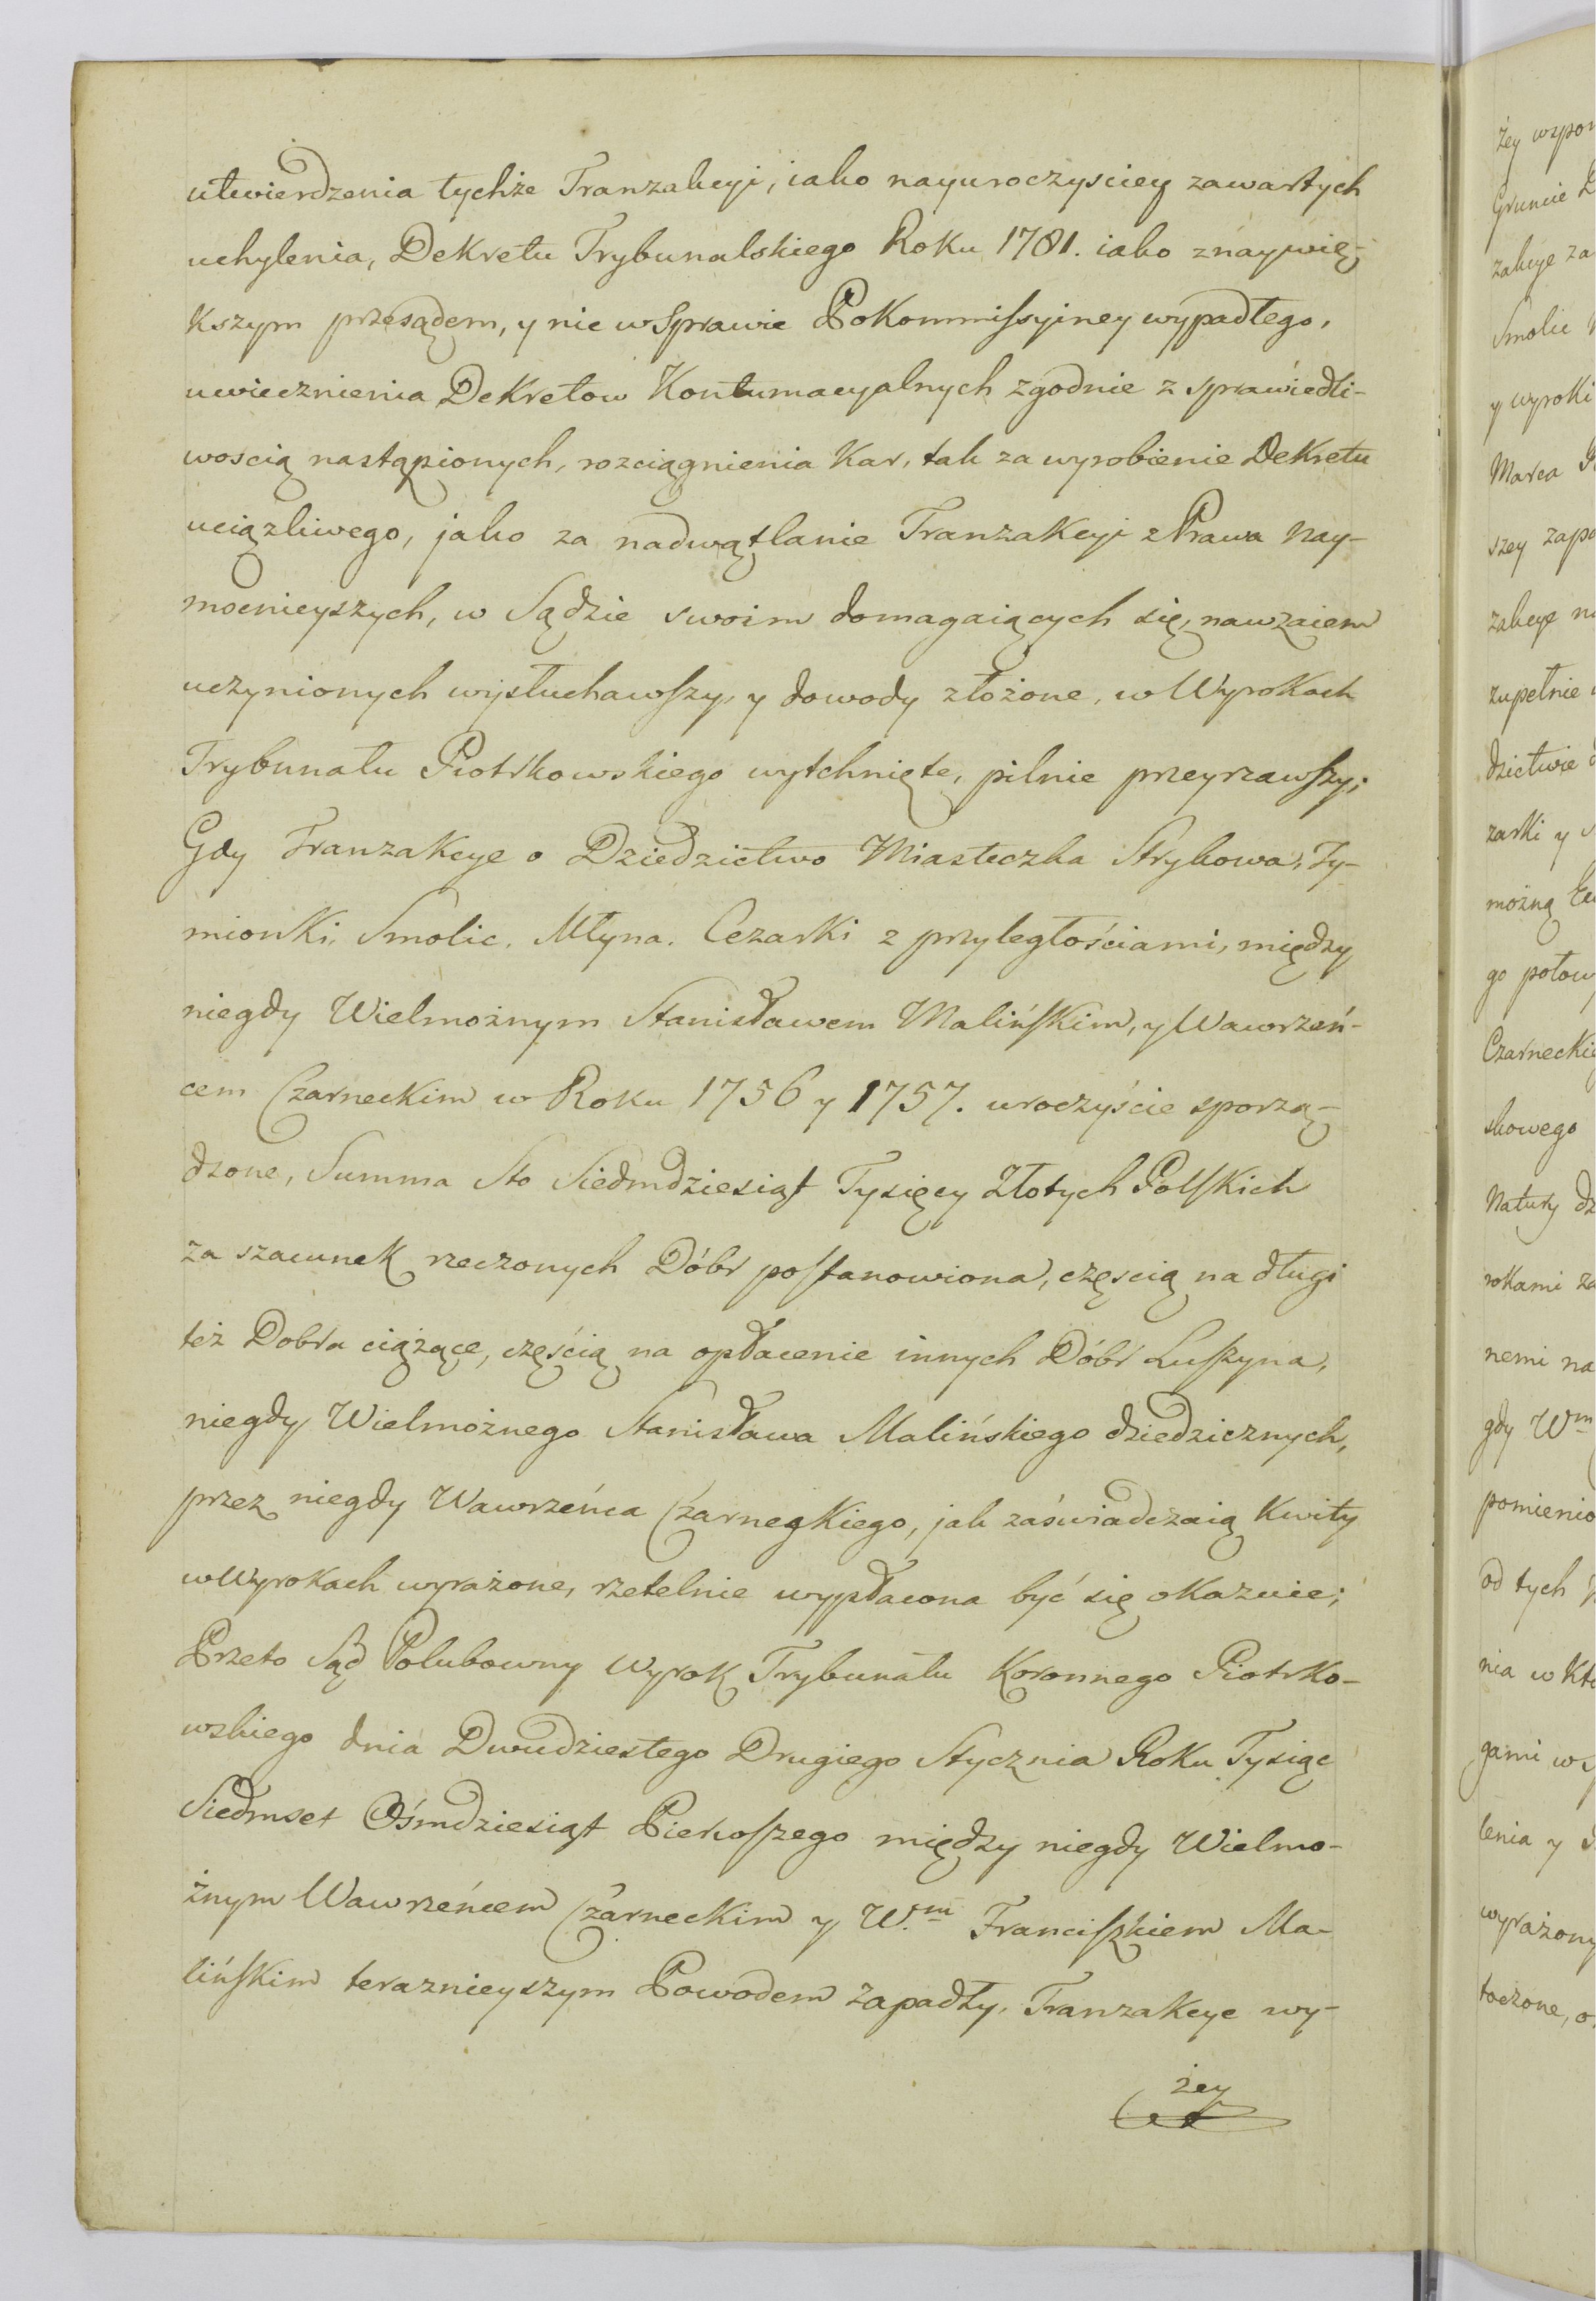 utwierdzenia tychże Tranzakcyi, iako nayuroczysciey zawartych
uchylenia, Dekretu Trybunalskiego Roku 1781. iako z naywię-
kszym przesądem, y nie w Sprawie Pokommissyiney wypadłego,
uwiecznienia Dekretow Kontumacyalnych zgodnie z sprawiedli-
wością nastąpionych, rozciągnienia Kar, tak za wyrobienie Dekretu
uciązliwego, jako za nadwątlanie Tranzakcyi z Prawa nay-
mocnieyszych, w Sądzie swoim domagaiących się, nawzaiem
uczynionych wysłuchawszy, y dowody złożone, w Wyrokach
Trybunału Piotrkowskiego wytchnięte, pilnie przeyrzawszy;
Gdy Tranzakcye o Dziedzictwo Miasteczka Strykowa, Ty-
mionki, Smolic, Młyna, Cezarki z przyległościami, między
niegdy Wielmożnym Stanisławem Malińskim, y Wawrzeń-
cem Czarneckim w Roku 1756 y 1757. uroczyście sporzą-
dzone, Summa Sto Siedmdziesiąt Tysięcy Złotych Polskich
za szacunek rzeczonych Dóbr postanowiona, częscią na długi
też Dobra ciążące, częścią na opłacenie innych Dóbr Luszyna,
niegdy Wielmożnego Stanisława Malińskiego dziedzicznych,
przez niegdy Wawrzeńca Czarneckiego, jak zaświadczaią Kwity
w Wyrokach wyrażone, rzetelnie wypłacona być się okazuie;
Przeto Sąd Polubowny Wyrok Trybunału Koronnego Piotrko-
wskiego dnia Dwudziestego Drugiego Stycznia Roku Tysiąc
Siedmset Ośmdziesiąt Pierwszego między niegdy Wielmo-
żnym Wawrzeńcem Czarneckim y W.m Franciszkiem Ma-
lińskim teraznieyszym Powodem zapadły, Tranzakcye wy-
żey
żey wspom
Gruncie
zakcye za
Smolic
y wyroki
Marca
szey zapa
zakcye na
zupełnie
dzictwie
zarki y
można
go połow
Czarneckie
skowego
Natury dz
rokami za
nemi na
gdy Wm
pomienio
od tych
nia w któ
gami w
lenia y
wyrażony
toczone, o